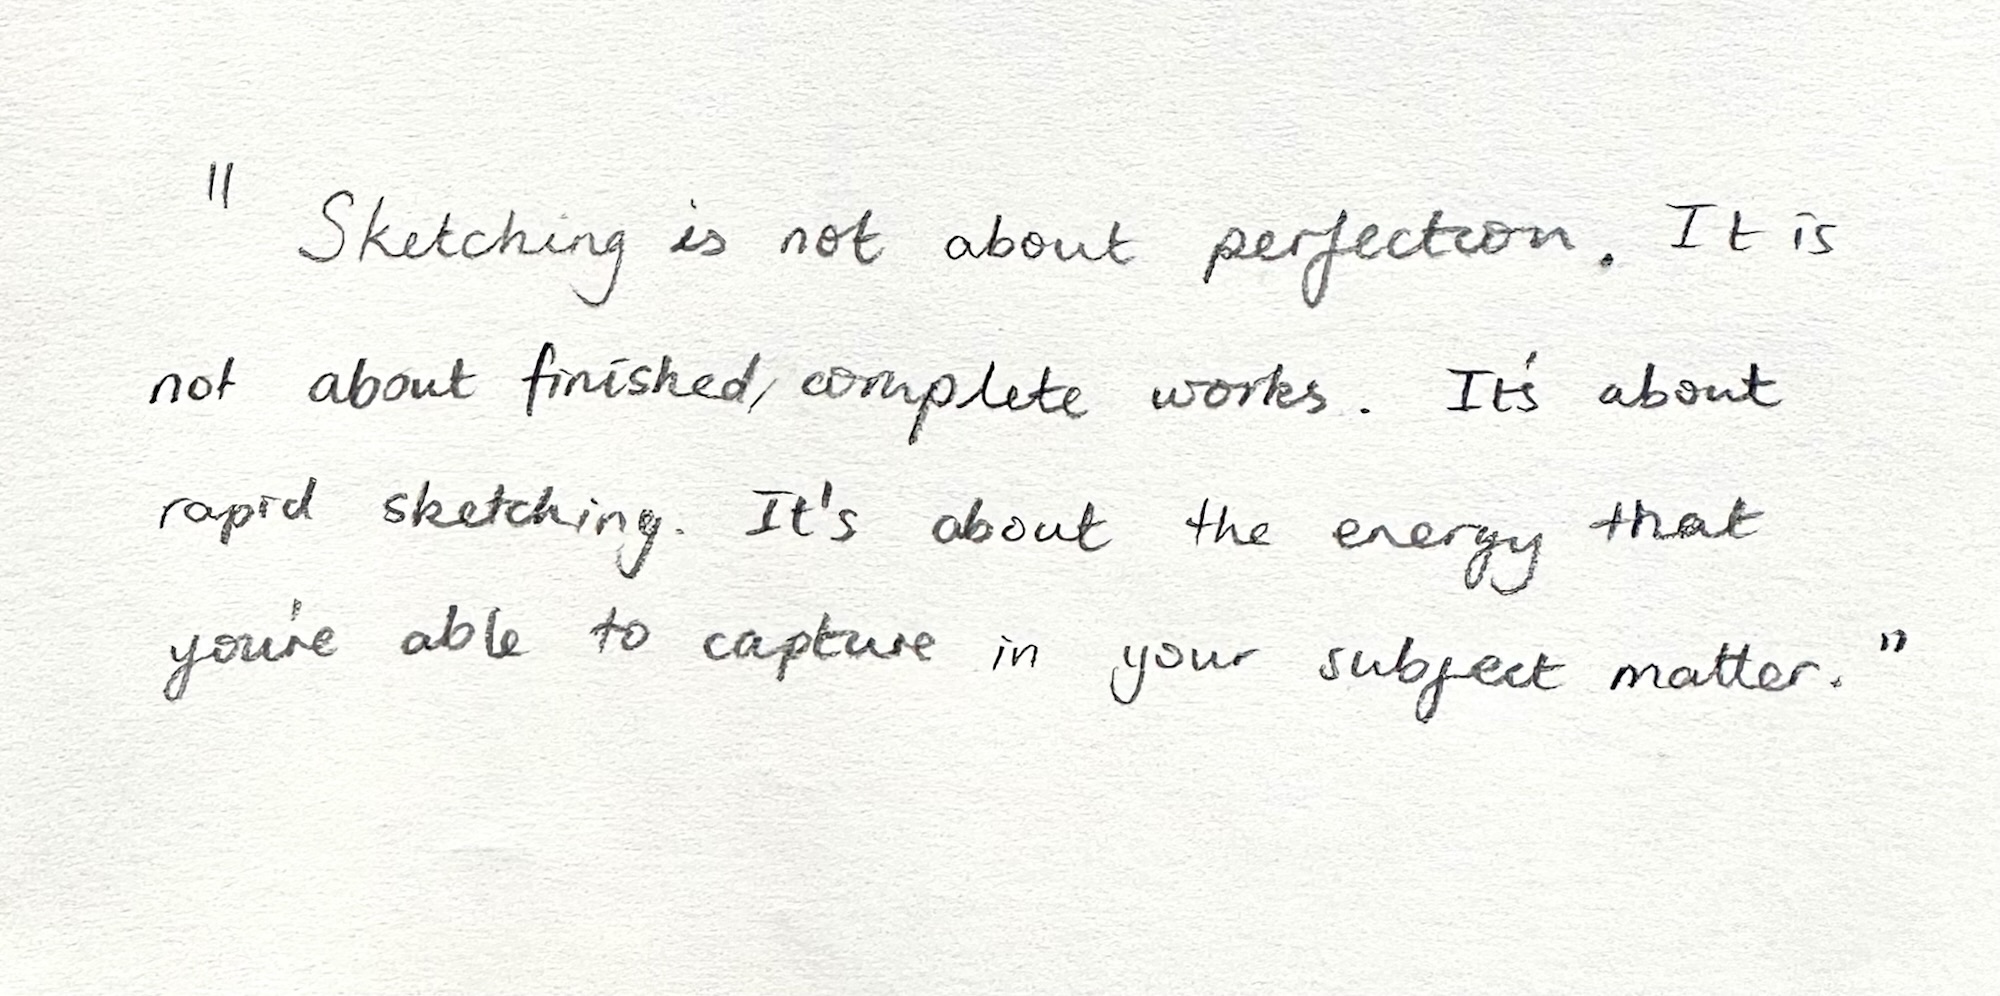 " Sketching is not about perfection. It is
not about finished, complete works. It's about
rapid sketching. It's about the energy that
you're able to capture in your subject matter."